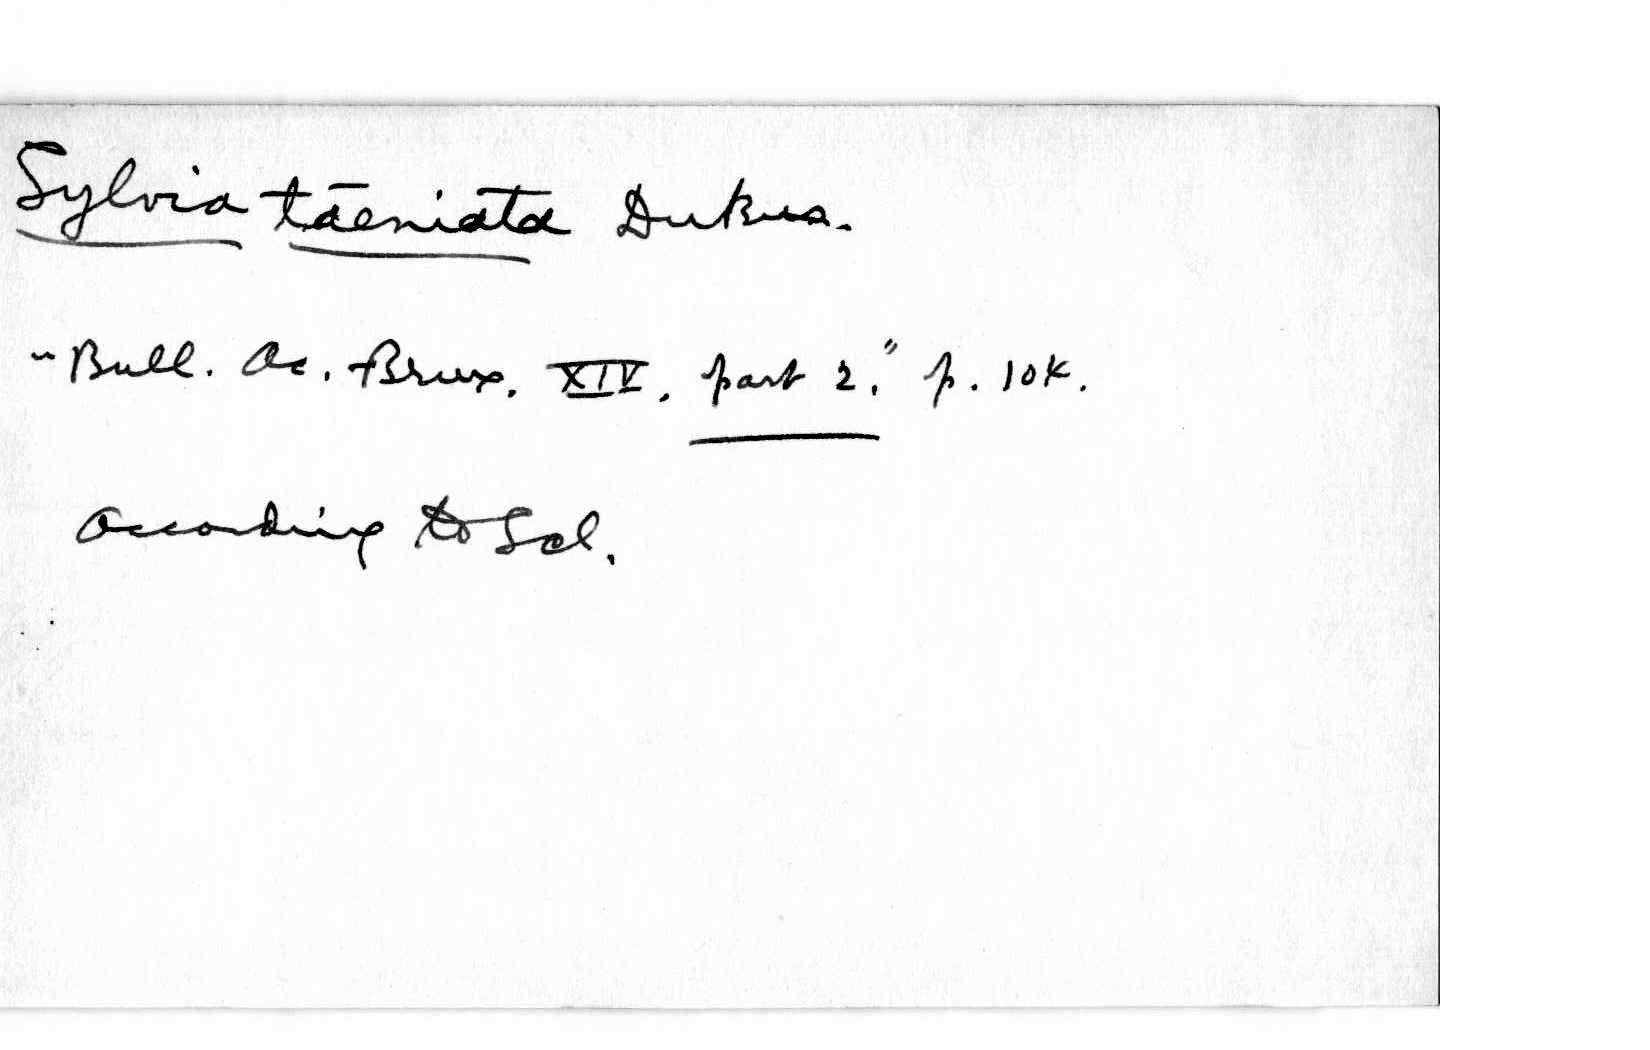 Sylvia taeniata Dubus.
"Bull. Ac. Brux. XIV, part 2," p. 104.
According to Scl.